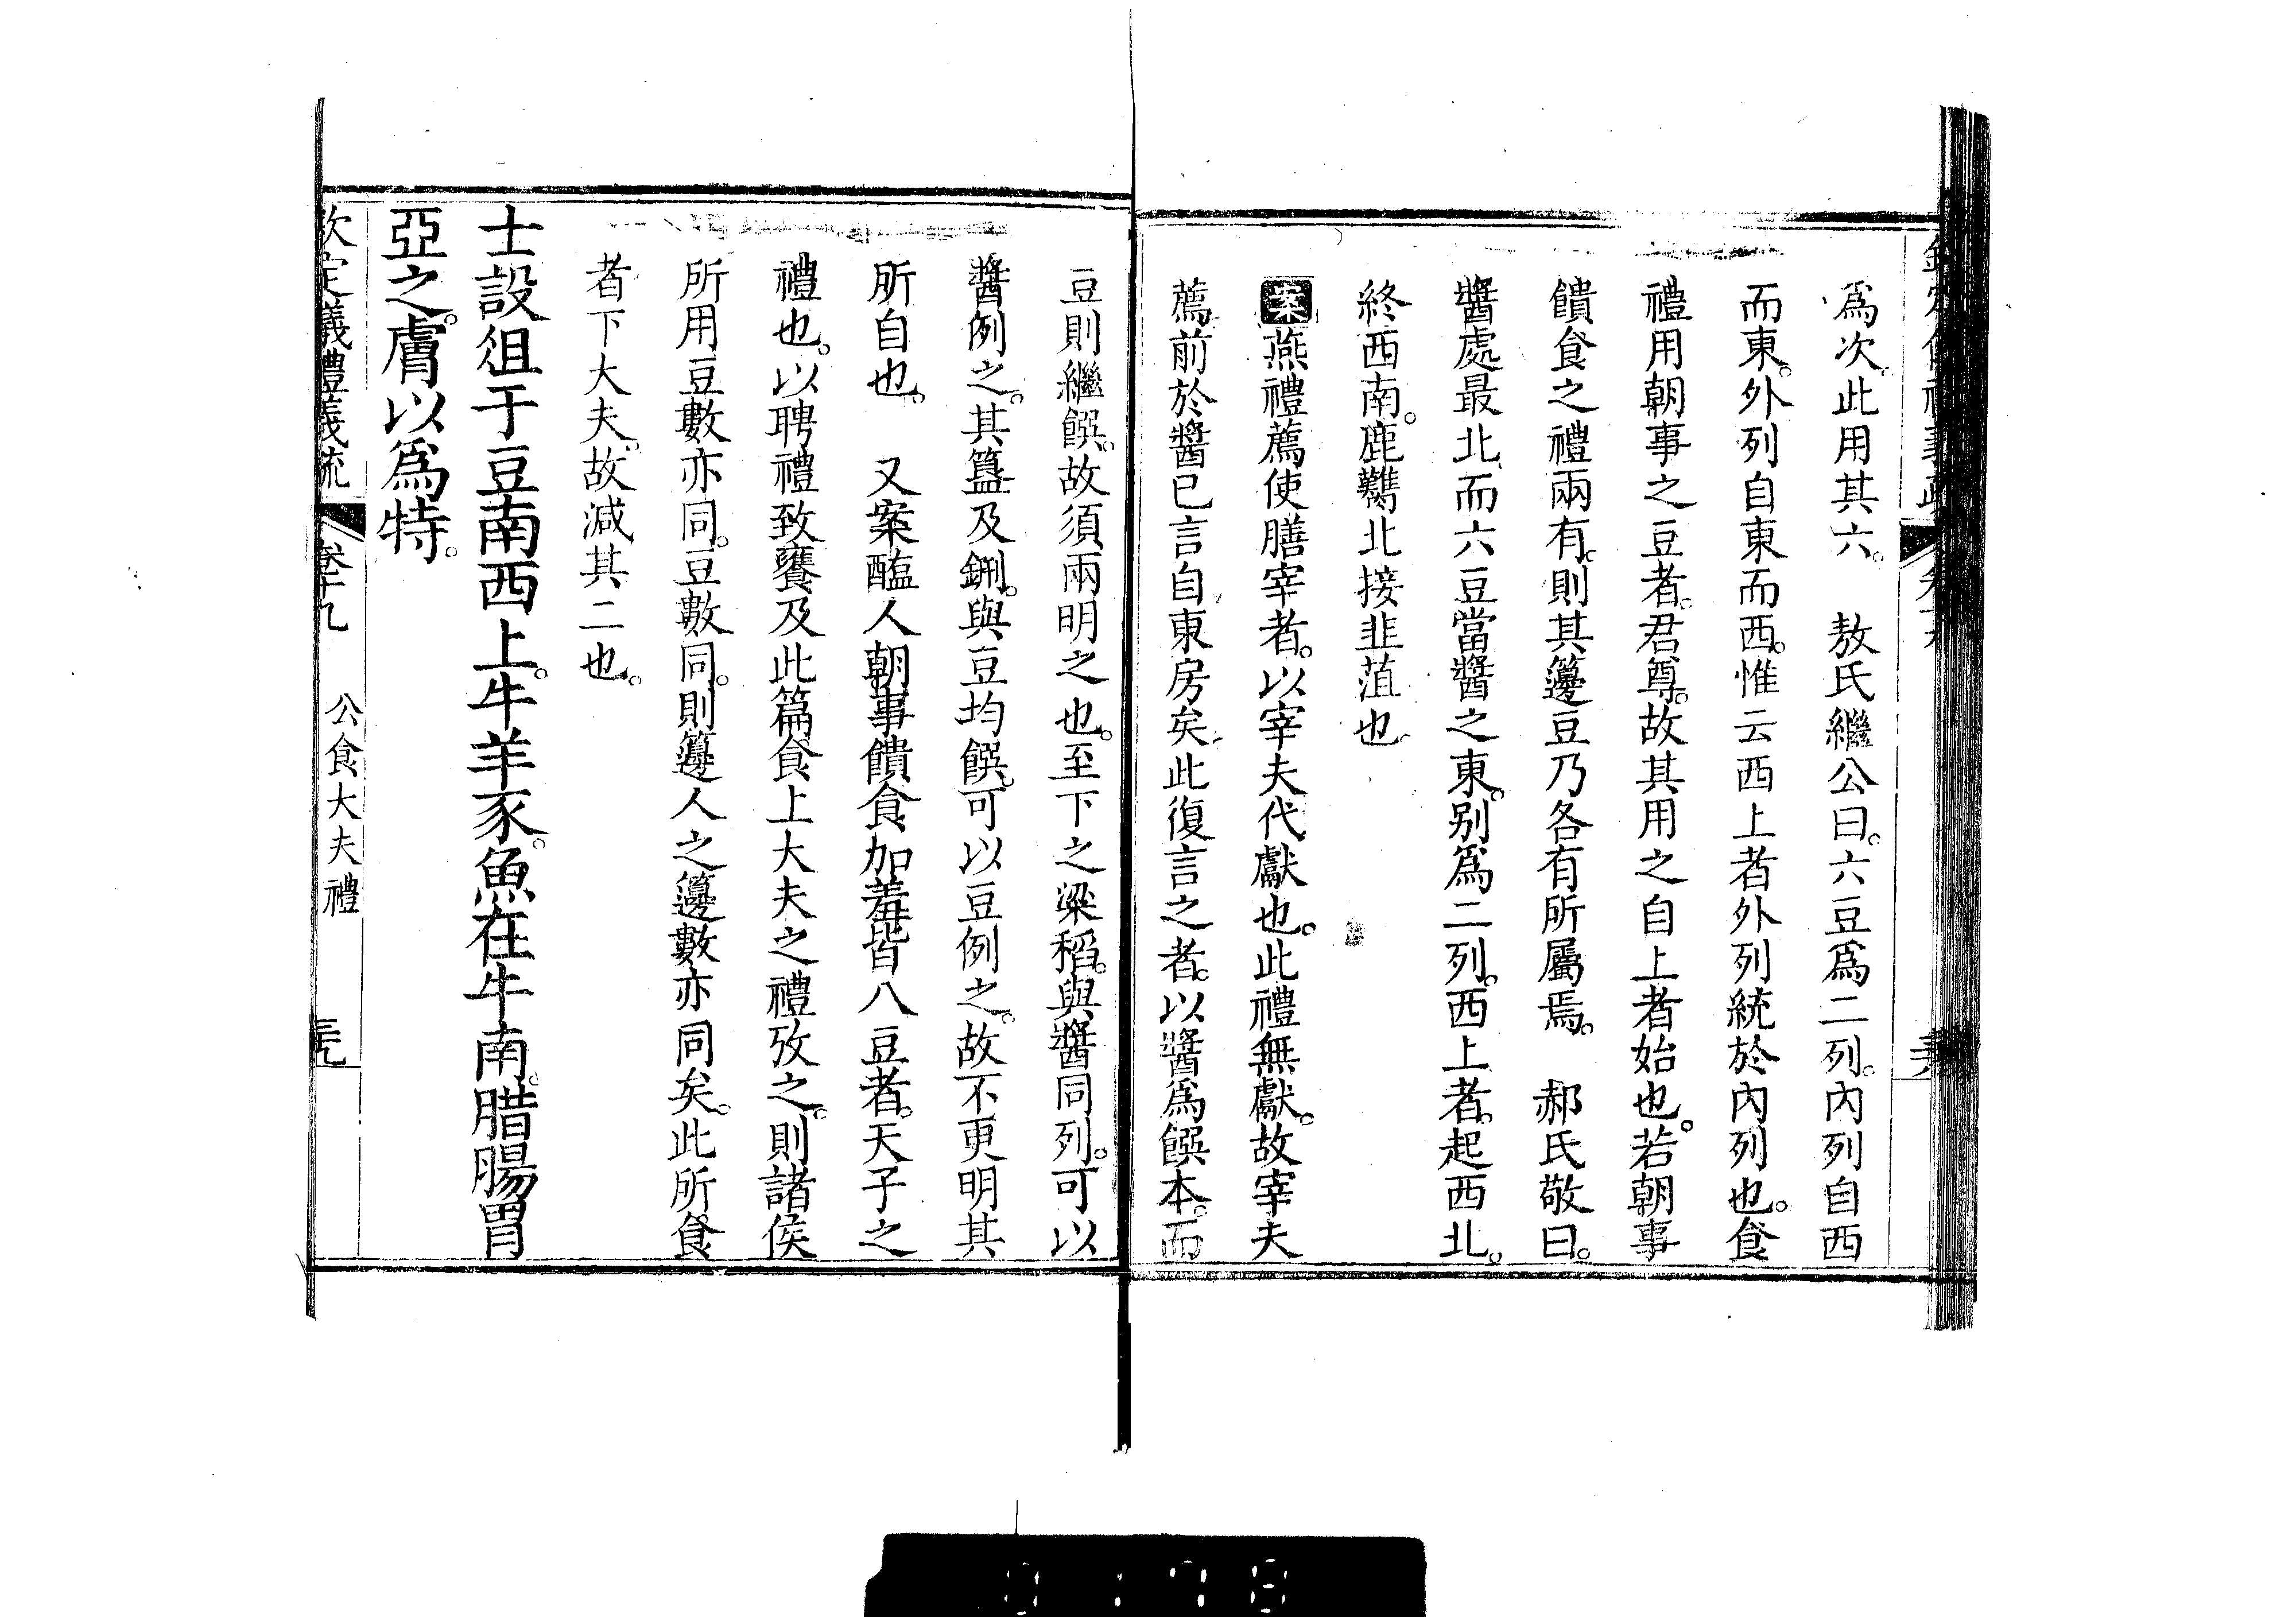 爲次。此用其六。　敖氏繼公曰。六豆爲二列。內列自西
而東。外列自東而西。惟云西上者外列統於內列也。食
禮用朝事之豆者。君尊。故其用之自上者始也。若朝事
饋食之禮兩有。則其籩豆乃各有所屬焉。　郝氏敬曰。
醬處最北。而六豆當醬之東。別爲二列。西上者。起西北。
終西南。鹿臡北接韭菹也。
案燕禮薦使膳宰者。以宰夫代獻也。此禮無獻。故宰夫
薦前於醬已言自東房矣。此復言之者。以醬爲饌本。而
豆則繼饌。故須兩明之也。至下之粱稻。與醬同列。可以
醬例之。其簋及鉶。與豆均饌。可以豆例之。故不更明其
所自也。　又案醢人朝事饋食加羞皆八豆者。天子之
禮也。以聘禮致饔及此篇食上大夫之禮攷之。則諸侯
所用豆數亦同。豆數同。則籩人之籩數亦同矣。此所食
者下大夫。故減其二也。
士設俎于豆南西上。牛羊豕。魚在牛南。腊腸胃
亞之。膚以爲特。
欽定儀禮義疏　卷十九　公食大夫禮　三九
0178